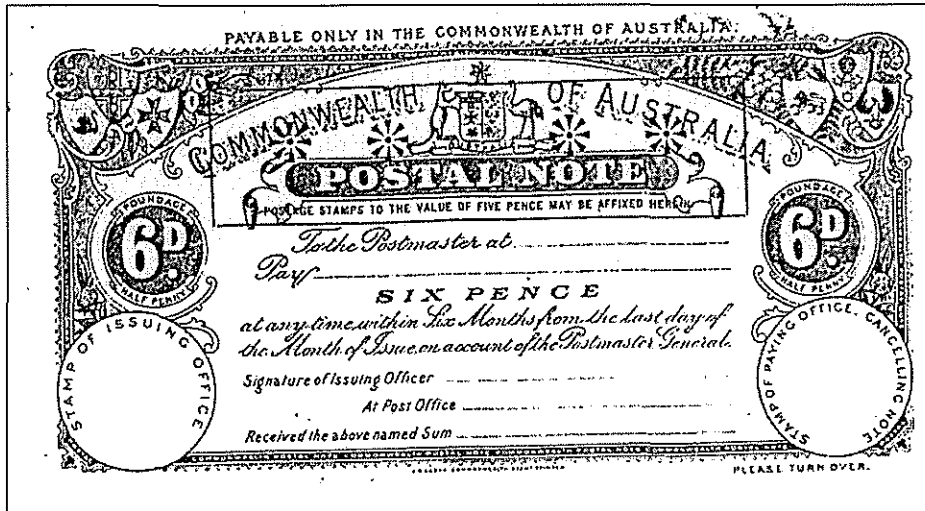 PAYABLE ONLY IN THE COMMONWEALTH OF AUSTRALIA.
COMMONWEALTH OF AUSTRALIA
POSTAL NOTE
POSTAGE STAMPS TO THE VALUE OF FIVE PENCE MAY BE AFFIXED HEREIN
POUNDAGE
6D.
HALF PENNY
POUNDAGE
6D.
HALF PENNY
To the Postmaster at
Pay
SIX PENCE
at any time within Six Months from the last day of
the Month of Issue, on account of the Postmaster General.
STAMP OF ISSUING OFFICE
STAMP OF PAYING OFFICE, CANCELLING NOTE
Signature of Issuing Officer
At Post Office
Received the above named Sum
PLEASE TURN OVER.